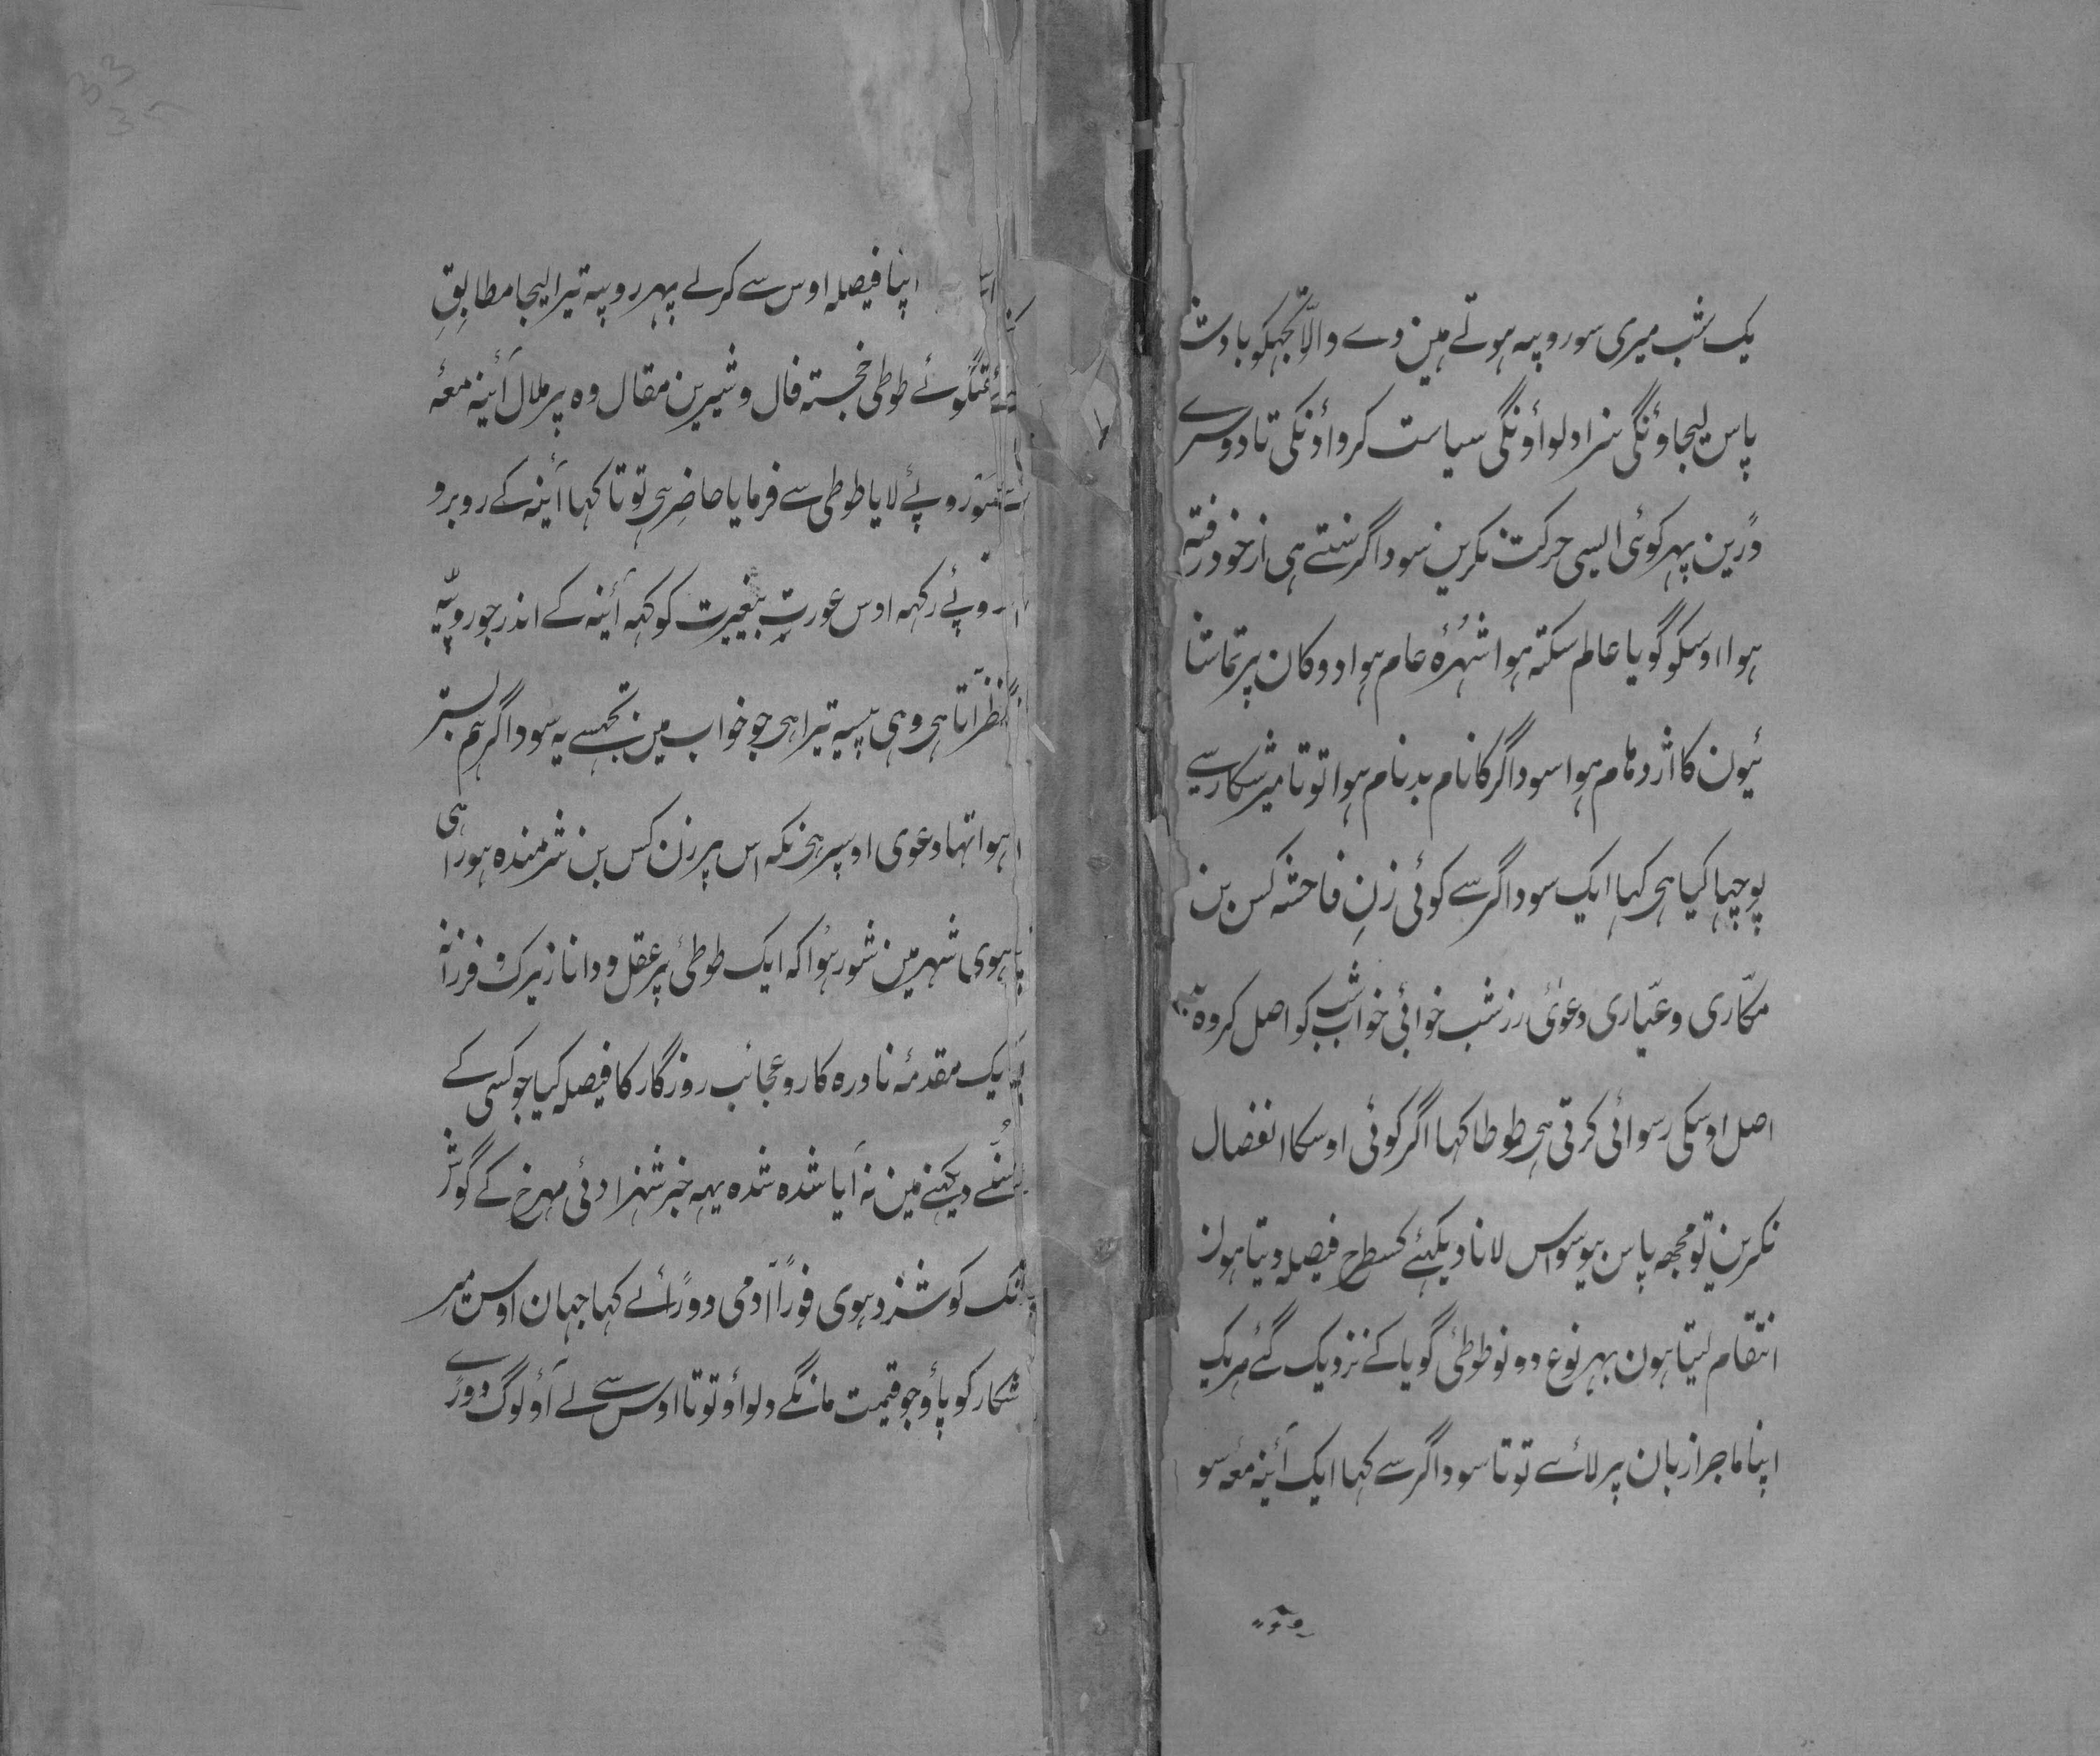 یک شب میری سو روپیہ ہوتے ہین دے والّا تجہکو بادشا
پاس لیجاؤنگی سزا دلواؤنگی سیاست کرواؤنگی تا دوسرے
ڈرین پہر کوئی ایسی حرکت نکرین سوداگر سنتے ہی از خود رفتہ
ہوا اوسکو گویا عالم سکتہ ہوا شہرۂ عام ہوا دوکان پر تماشا
ئیون کا اژدہام ہوا سوداگر کا نام بدنام ہوا توتا میر شکار سے
پوچہا کیا ہی کہا ایک سوداگر سے کوئی زنِ فاحشہ کس بن
مکّاری و عیّاری دعوئ زر شب خوابئ خواب شب کو اصل کر وہ
اصل اوسکی رسوائی کرتی ہی طوطا کہا اگر کوئی اوسکا انفصال
نکرین تو مجھ پاس بیوسواس لانا دیکہئے کسطرح فیصلہ دیتا ہون
انتقام لیتا ہون بہر نوع دونو طوطئ گویا کے نزدیک گئے ہر یک
اپنا ماجرا زبان پر لائے توتا سوداگر سے کہا ایک آئینہ معہ سو
اپنا فیصلہ اوس سے کرلے پہر روپیہ تیرا لیجا مطابقِ
گفتگوئے طوطی خجستہ فال و شیرین مقال وہ پر ملال آئینہ معہ
سو روپئے لایا طوطی سے فرمایا حاضر ہی توتا کہا آئینہ کے روبرو
روپئے رکہہ اوس عورتِ بیغیرت کو کہہ آئینہ کے اندر جو روپیّہ
نظر آتا ہی وہی پیسہ تیرا ہی جو خواب مین تجہسے یہ سوداگر ہم بستر
ہوا تہا دعوی اوسپر ہی نکہ اس پر زن کس بن شرمندہ ہو راہی
ہوی شہر مین شور ہوا کہ ایک طوطئ پر عقل و دانا زیرک و فرزانہ
ایک مقدمۂ نادرہ کار و عجائب روزگار کا فیصلہ کیا جو کسی کے
سُننے دیکہنے مین نہ آیا شدہ شدہ یہہ خبر شہزادئی مہرخ کے گوش
تک گوشزد ہوی فوراً آدمی دوڑائے کہا جہان اوس میر
شکار کو پاؤ جو قیمت مانگے دلواؤ توتا اوس سے لے آؤ لوگ دوڑے